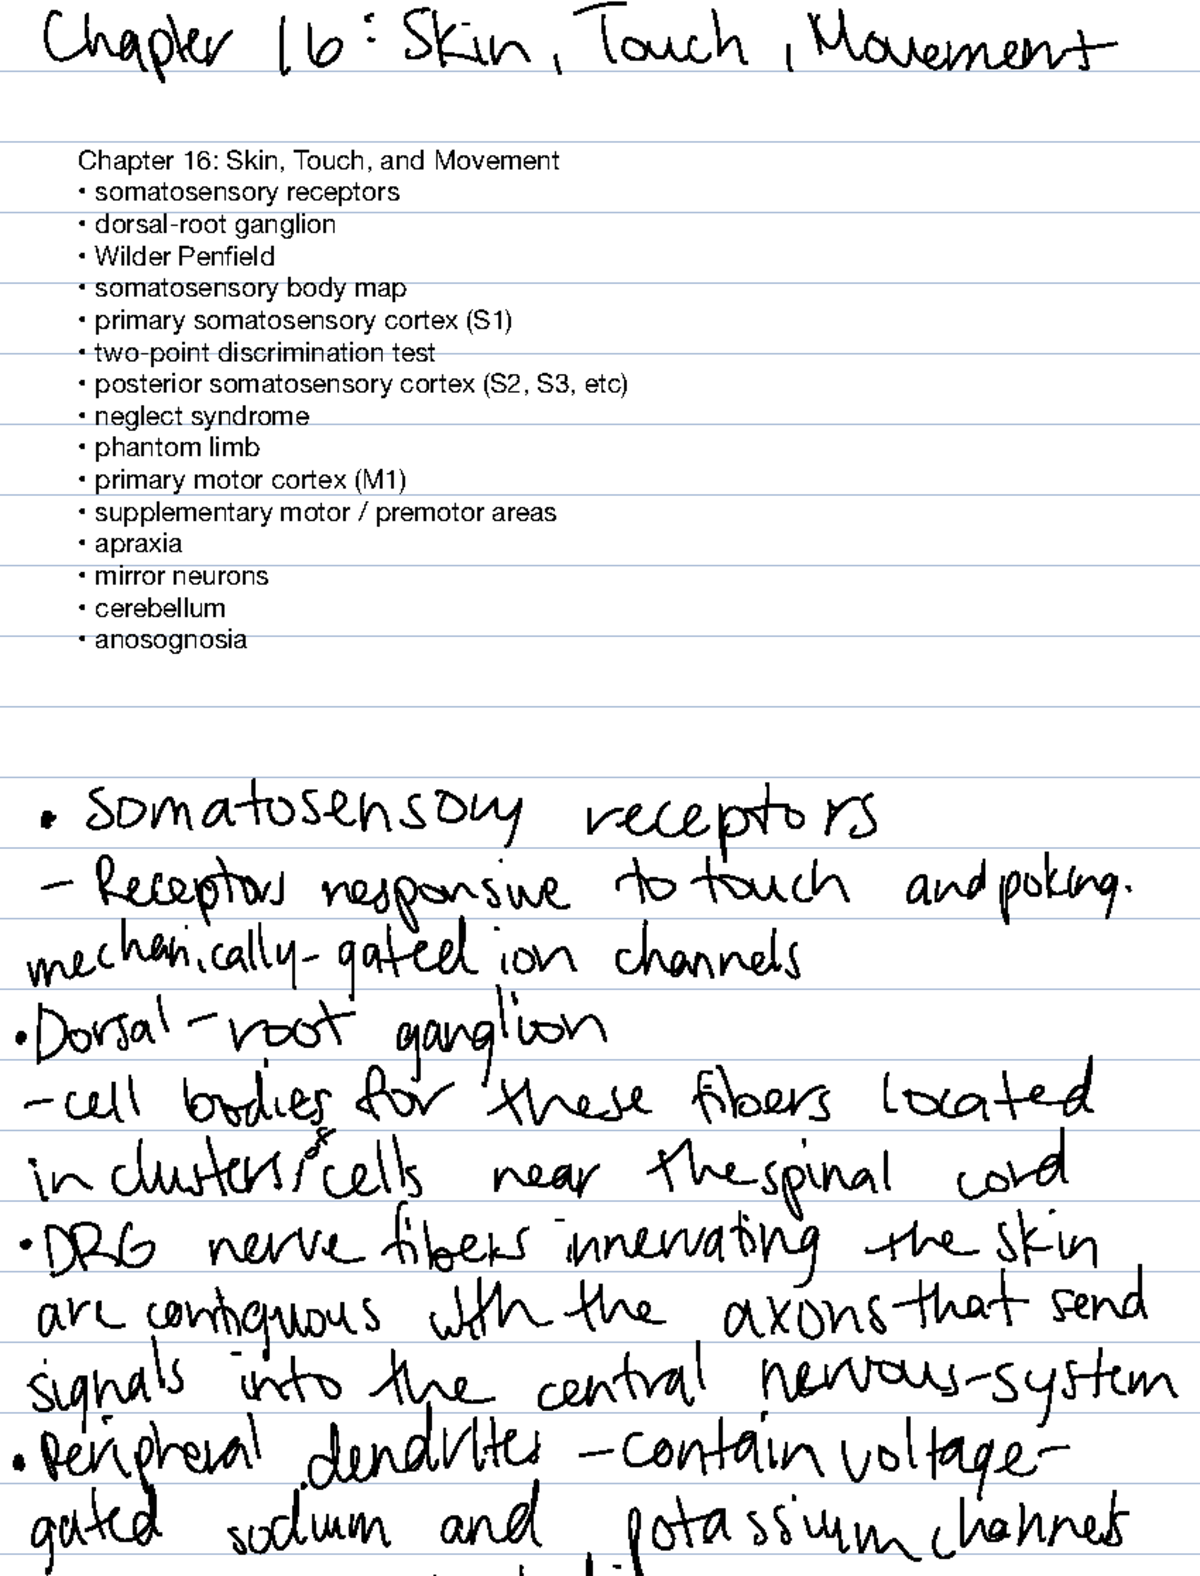 Chapter 16: Skin, Touch, Movement
Chapter 16: Skin, Touch, and Movement
• somatosensory receptors
• dorsal-root ganglion
• Wilder Penfield
• somatosensory body map
• primary somatosensory cortex (S1)
• two-point discrimination test
• posterior somatosensory cortex (S2, S3, etc)
• neglect syndrome
• phantom limb
• primary motor cortex (M1)
• supplementary motor / premotor areas
• apraxia
• mirror neurons
• cerebellum
• anosognosia
• Somatosensory receptors
- Receptors responsive to touch and poking.
mechanically-gated ion channels
• Dorsal-root ganglion
- cell bodies for these fibers located
in clusters of cells near the spinal cord
• DRG nerve fibers innervating the skin
are contiguous with the axons that send
signals into the central nervous-system
• Peripheral dendrites - contain voltage-
gated sodium and potassium channels